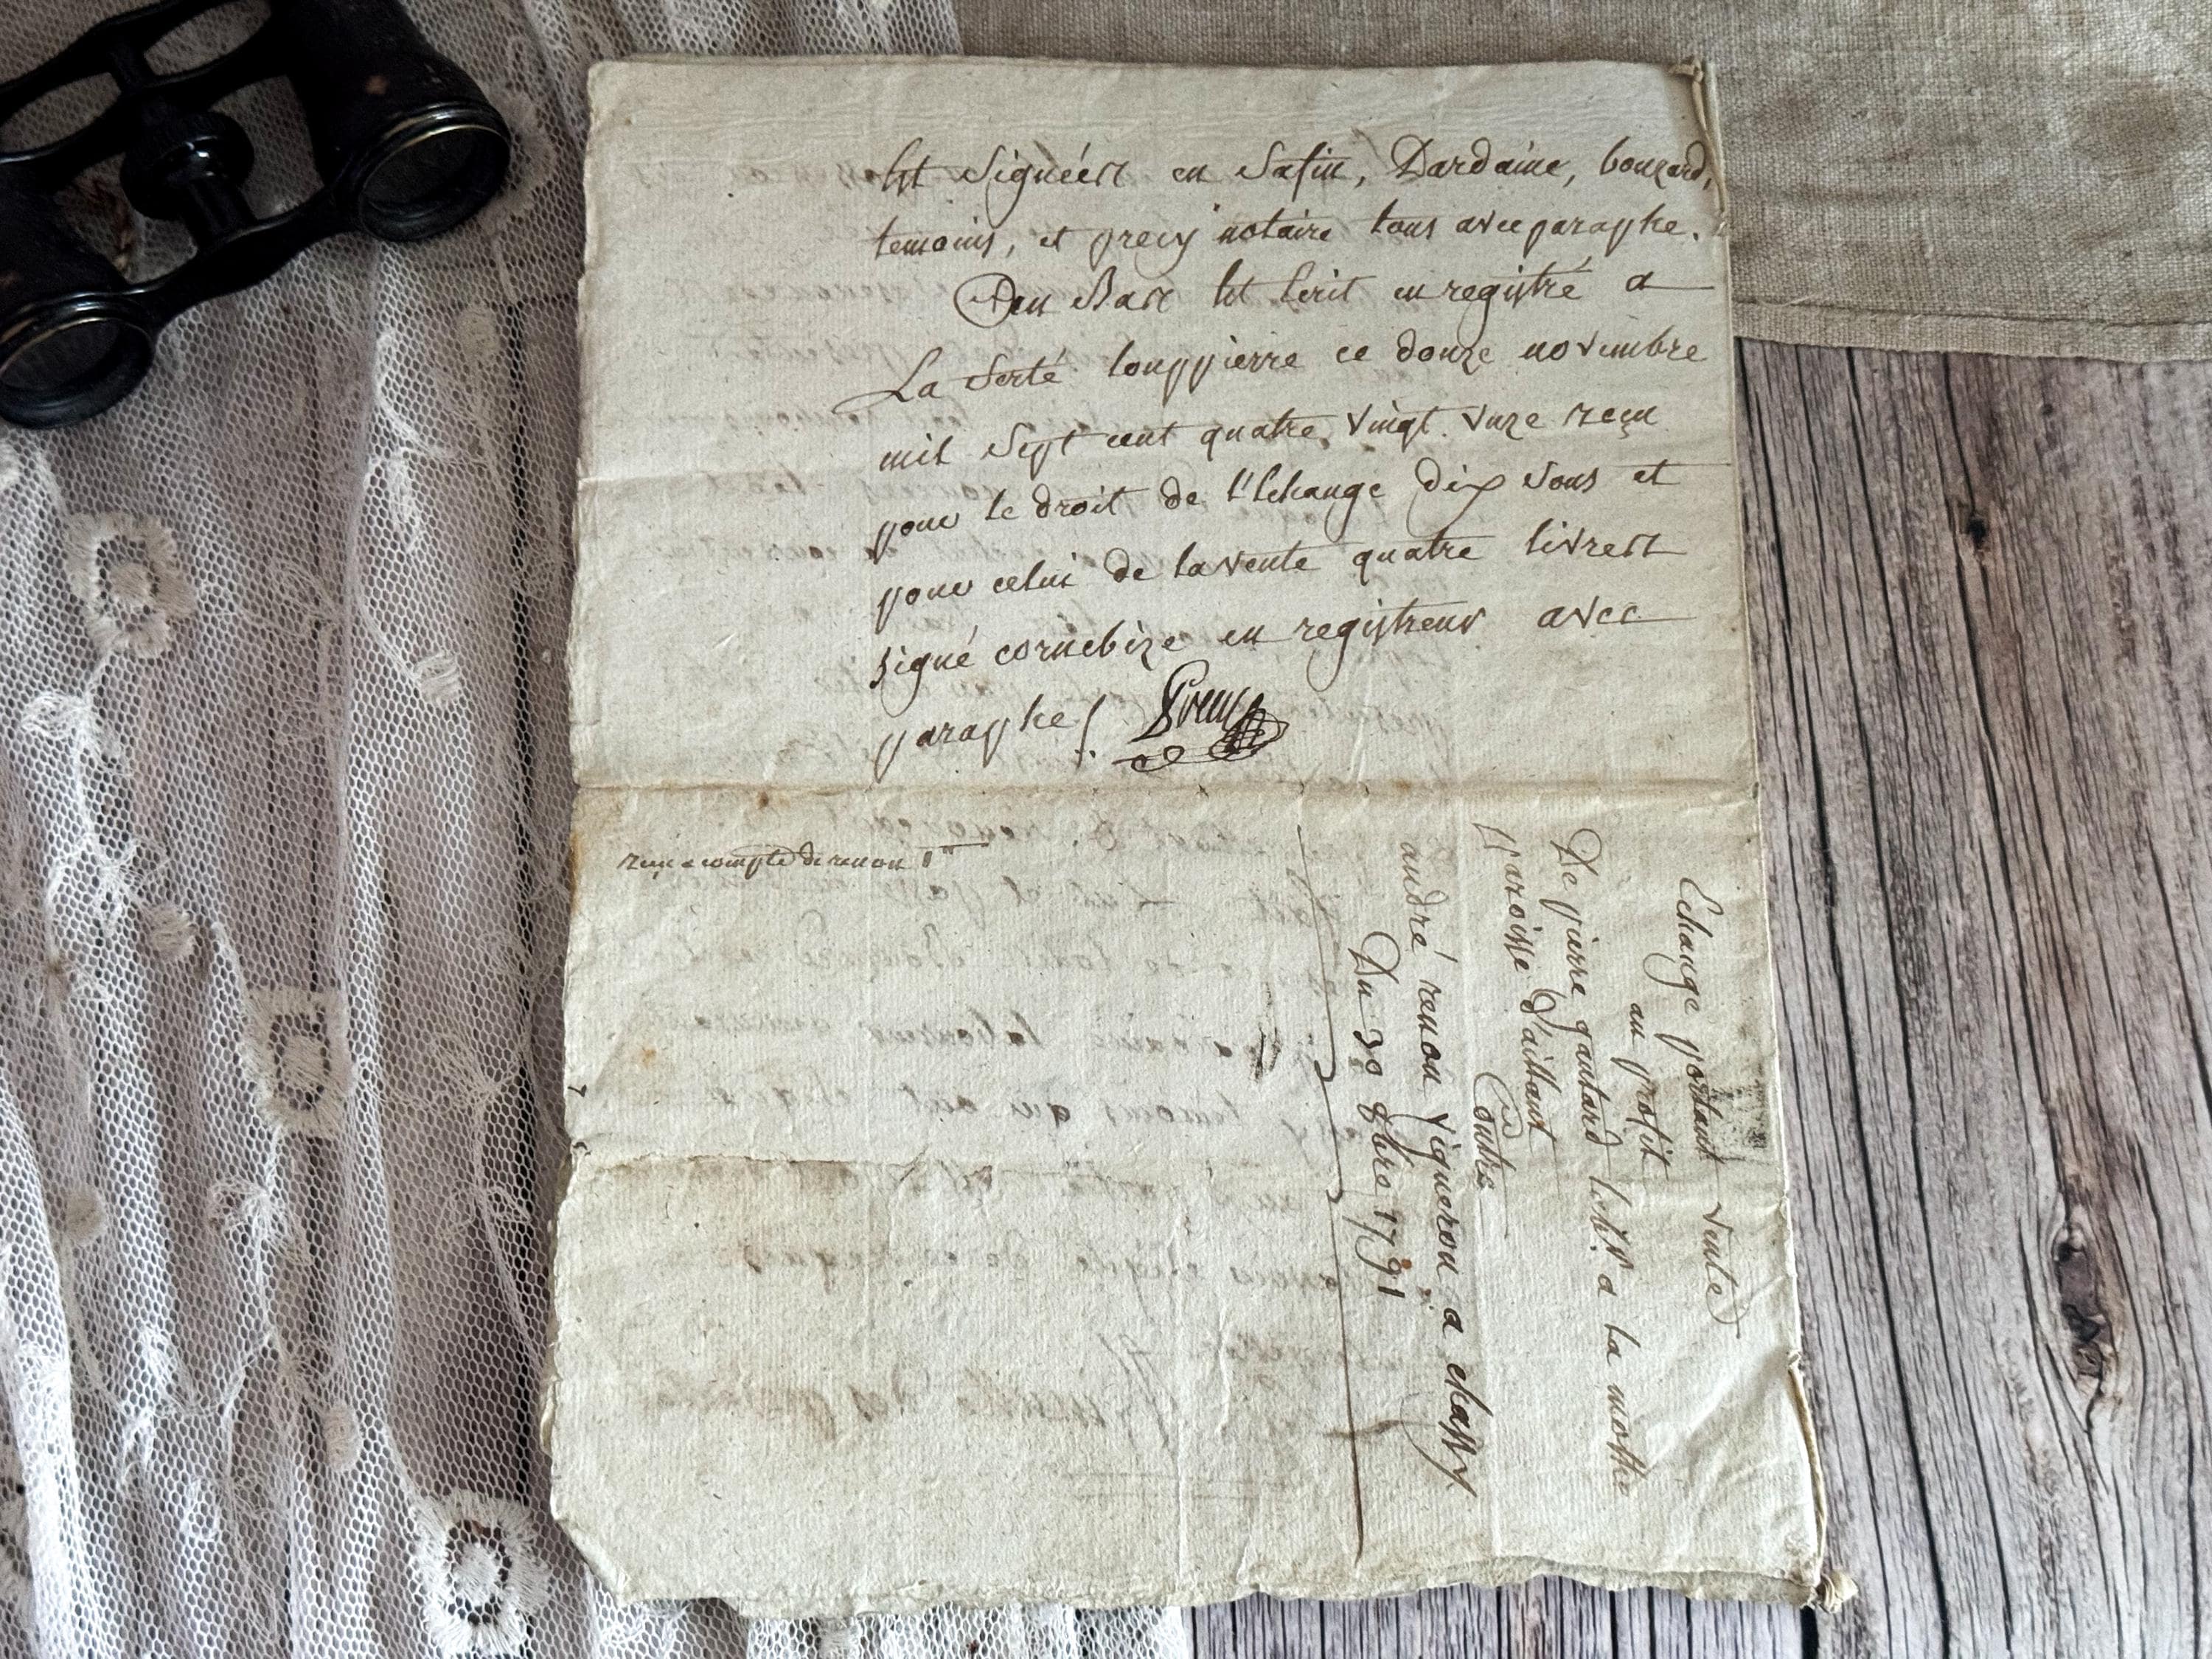 Est Signéés en Safin, Dardaine, bouzard,
temoins, et precy notaire tous avec paraphe.
En Bas Est Ecrit enregistré a
La ferté louppierre ce douze novembre
mil Sept cent quatre vingt unze reçu
pour le droit de l'Echange dix Sous et
pour celui de la vente quatre livres
signé cornebize enregistreur avec
paraphe /. Precy
reçu a compte de renon
Echange portant vente
au profit
De pierre gautard a la mothe
paroisse d'aillant
Contre
andré renon vigneron a chassy
Du 30 8bre 1791